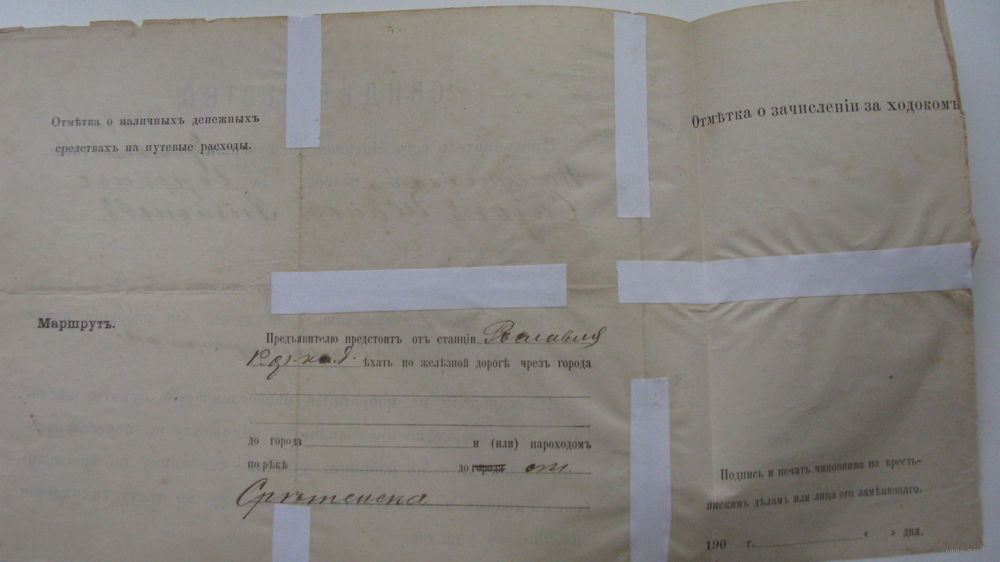 Отмѣтка о наличныхъ денежныхъ
средствахъ на путевые расходы.
Отмѣтка о зачисленіи за ходокомъ
Маршрутъ.
Предъявителю предстоитъ отъ станціи Рославля
ѣхать по желѣзной дорогѣ чрезъ города
до города и (или) пароходомъ
по рѣкѣ до города ст.
Срѣтенска
Подпись и печать чиновника по кресть-
янскимъ дѣламъ или лица его замѣняющаго.
190 г. « » дня.